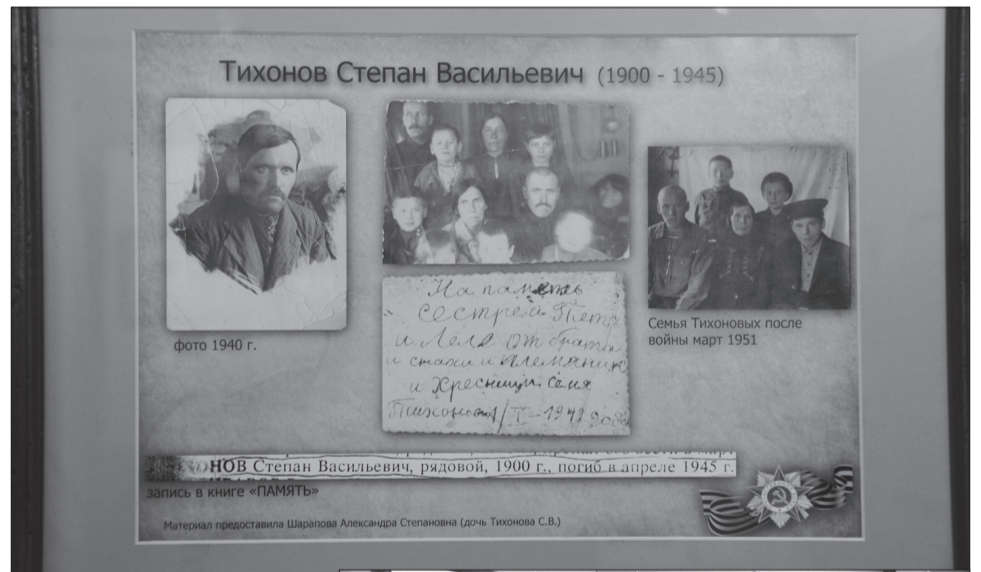 Тихонов Степан Васильевич (1900 - 1945)
фото 1940 г.
На память
сестре и
и Леля от братa
и
и Хресници семя
Тихоновы 1/I-1941 года
Семья Тихоновых после
войны март 1951
НОВ Степан Васильевич, рядовой, 1900 г., погиб в апреле 1945 г.
запись в книге «ПАМЯТЬ»
Материал предоставила Шарапова Александра Степановна (дочь Тихонова С.В.)